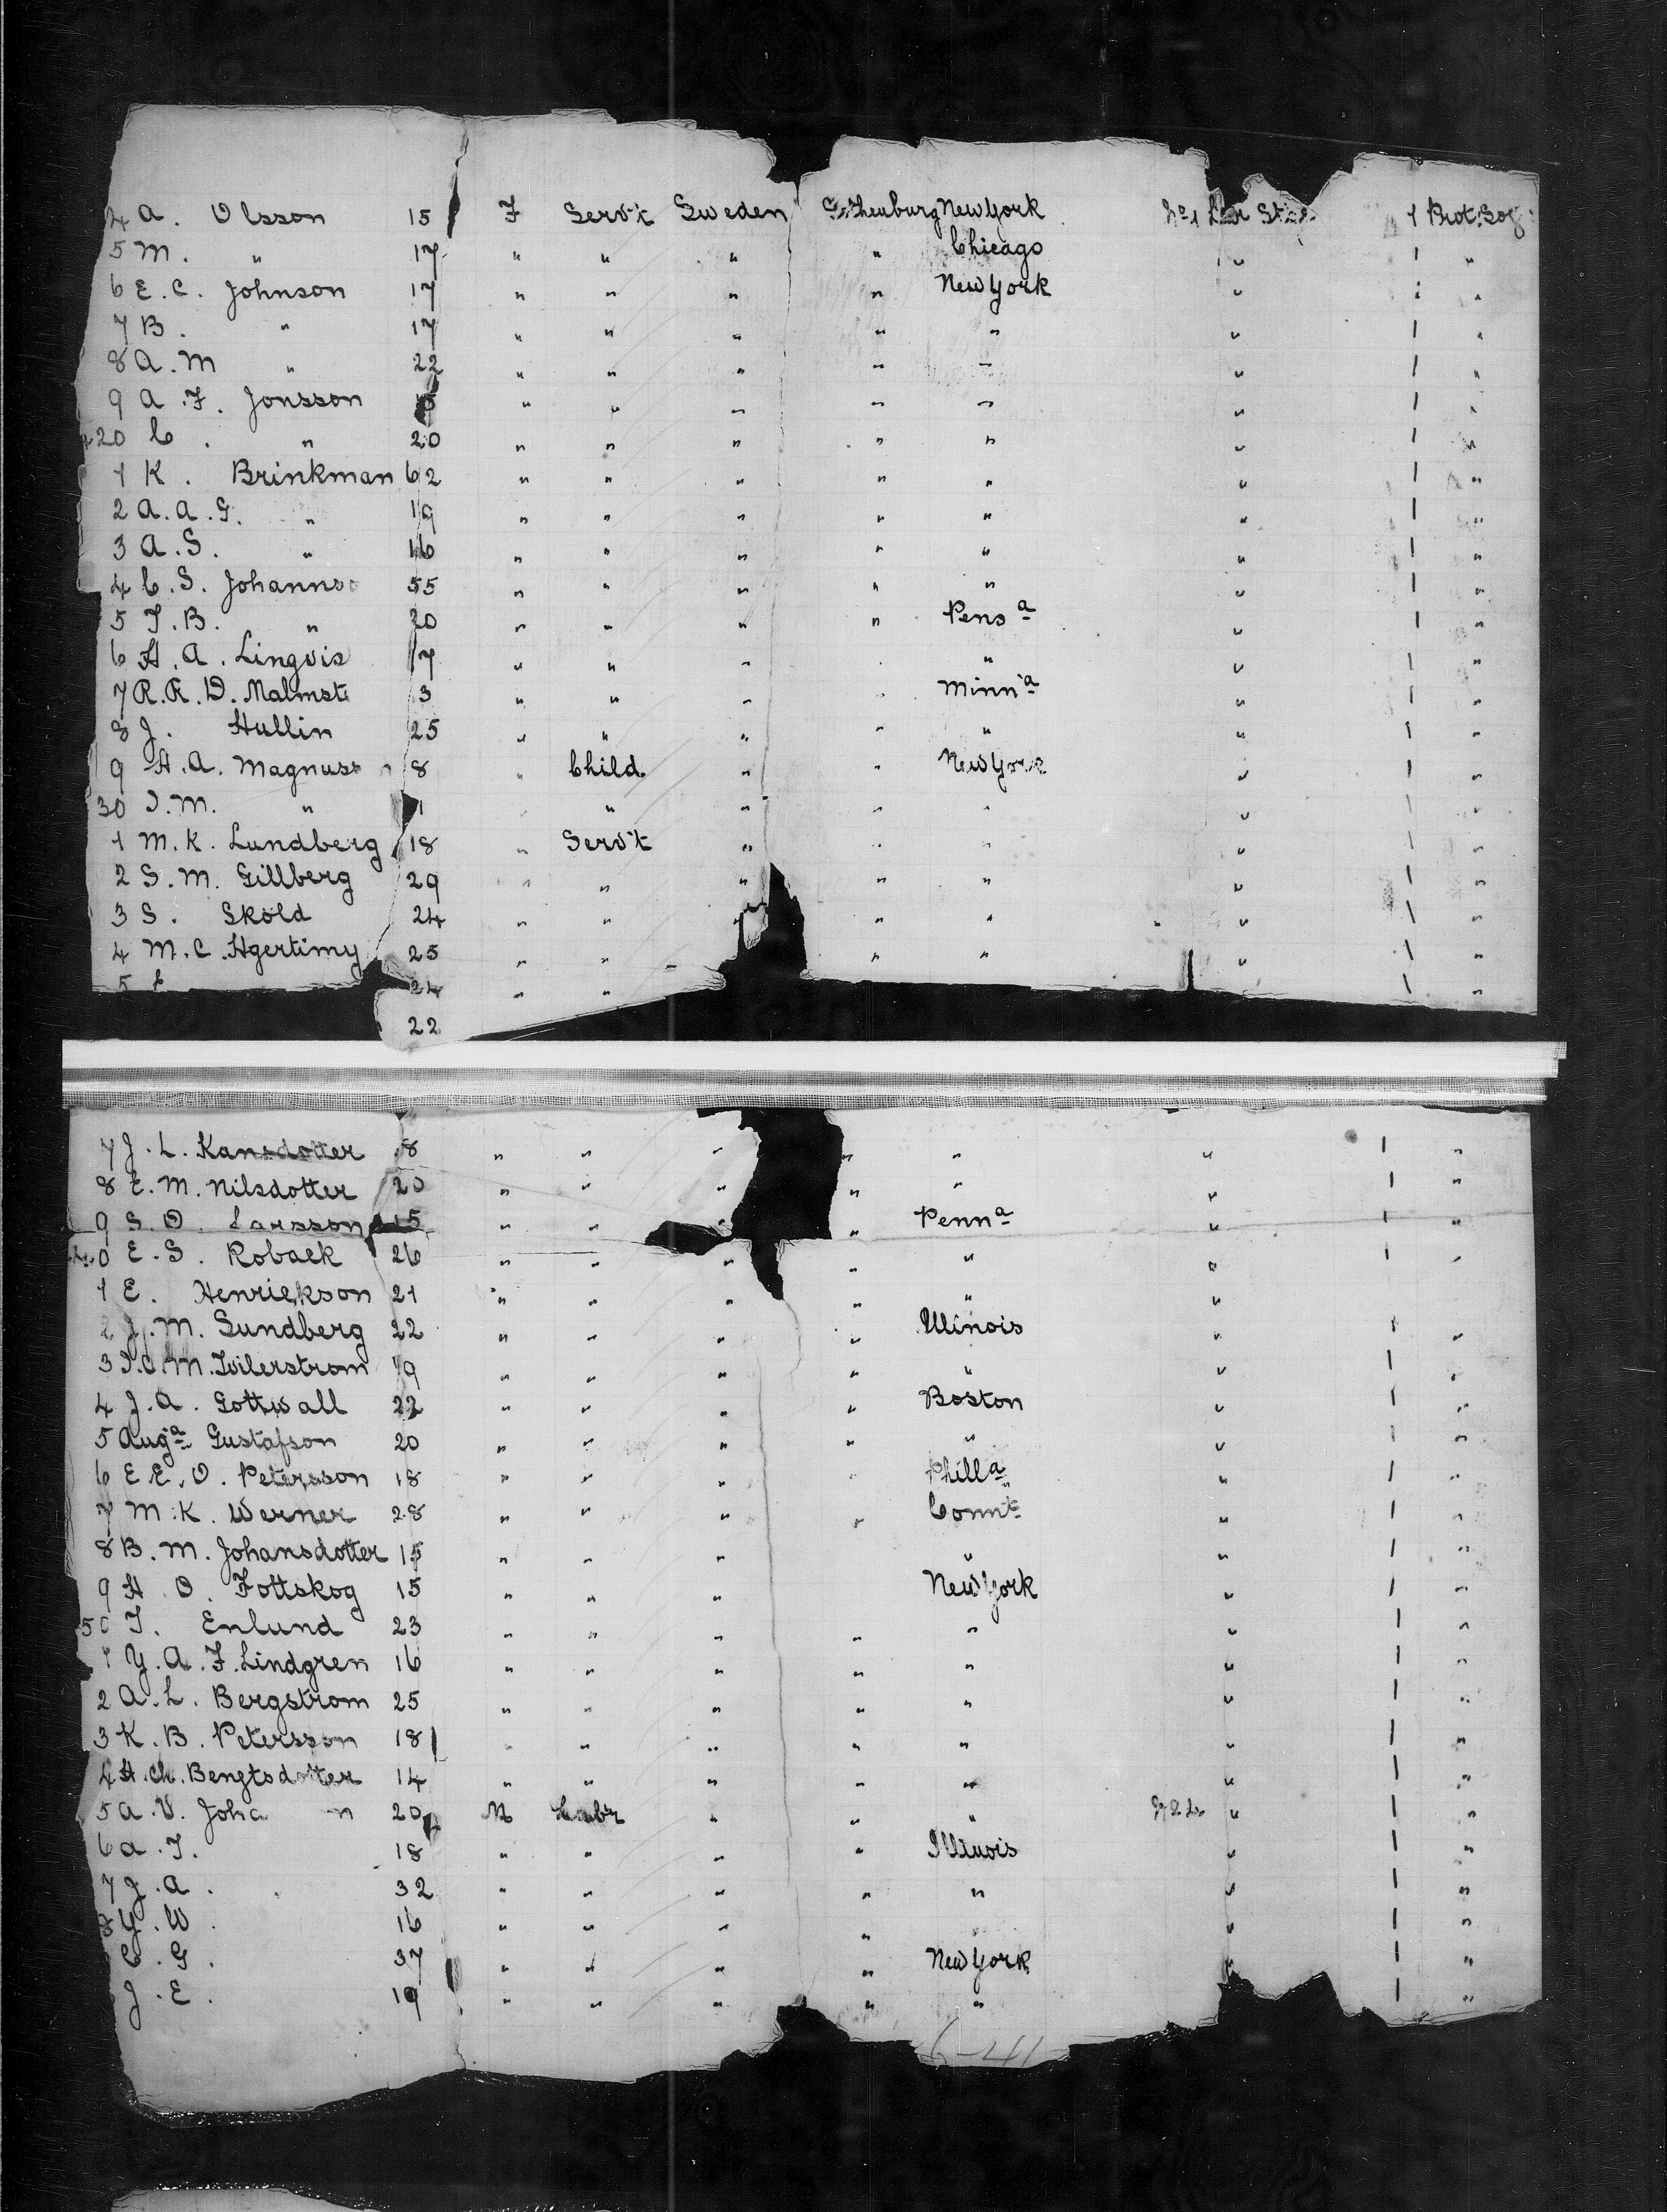 4 A. Olsson 15 F Serv't Sweden Gothenburg New York No 1 Lwr Steer 1 Prot. Soj
5 M. " 17 " " " " Chicago " 1 "
6 E. C. Johnson 17 " " " " New York " 1 "
7 B. " 17 " " " " " " 1 "
8 A. M " 22 " " " " " " 1 "
9 A. F. Jonsson " " " " " " 1 "
420 C. " 20 " " " " " " 1 "
1 K. Brinkman 62 " " " " " " 1 "
2 A. A. G. " 19 " " " " " " 1 "
3 A. S. " 16 " " " " " " 1 "
4 C. S. Johannso 55 " " " " " " 1 "
5 T. B. " 20 " " " " Pensa " 1 "
6 H. A. Lingvis 17 " " " " " " 1 "
7 R. R. D. Malmst 3 " " " " Minna " 1 "
8 J. Hullin 25 " " " " " " 1 "
9 H. A. Magnuss n 8 " Child " " New York " 1 "
30 I. M. " 1 " " " " " " 1 "
1 M. K. Lundberg 18 " Serv't " " " " 1 "
2 S. M. Gillberg 29 " " " " " " 1 "
3 S. Sköld 24 " " " " " " 1 "
4 M. C. Hgertimy 25 " " " " " 1 "
5 24 " " 1 "
22
7 J. L. Kansdotter 8 " " " " " " 1 "
8 E. M. Nilsdotter 20 " " " " " " 1 "
9 S. O. Larsson 15 " " " " Penna " 1 "
40 E. S. Roback 26 " " " " " " 1 "
1 E. Henrickson 21 " " " " " "
2 J. M. Sundberg 22 " " " " Illinois " 1 "
3 I. C. M. Tvilerstrom 19 " " " " " " 1
4 J. A. Gottwall 22 " " " " Boston " 1 "
5 Auga Gustafson 20 " " " " " " 1 "
6 E. E. O. Petersson 18 " " " " Philla " 1 "
7 M. K. Werner 28 " " " " Connt " 1 "
8 B. M. Johansdotter 15 " " " " " 1 "
9 H O. Fottskog 15 " " " New York " 1 "
50 T. Enlund 23 " " " " " " 1 "
1 Y. A. F. Lindgren 16 " " " " " " 1 "
2 A. L. Bergstrom 25 " " " " " " 1 "
3 K. B. Petersson 18 " " " " " " 1 "
4 H. Ch. Bengtsdotter 14 " " " " " " 1 "
5 A. V. Joha n 20 M Labr " " " No 2 L " 1 "
6 A. T. 18 " " " " Illinois " 1 "
7 J. A. 32 " " " " " " 1 "
8 Y. W. 16 " " " " " 1 "
C. G. 37 " " " " New York " 1 "
J. E. 19 " " " " " 1 "